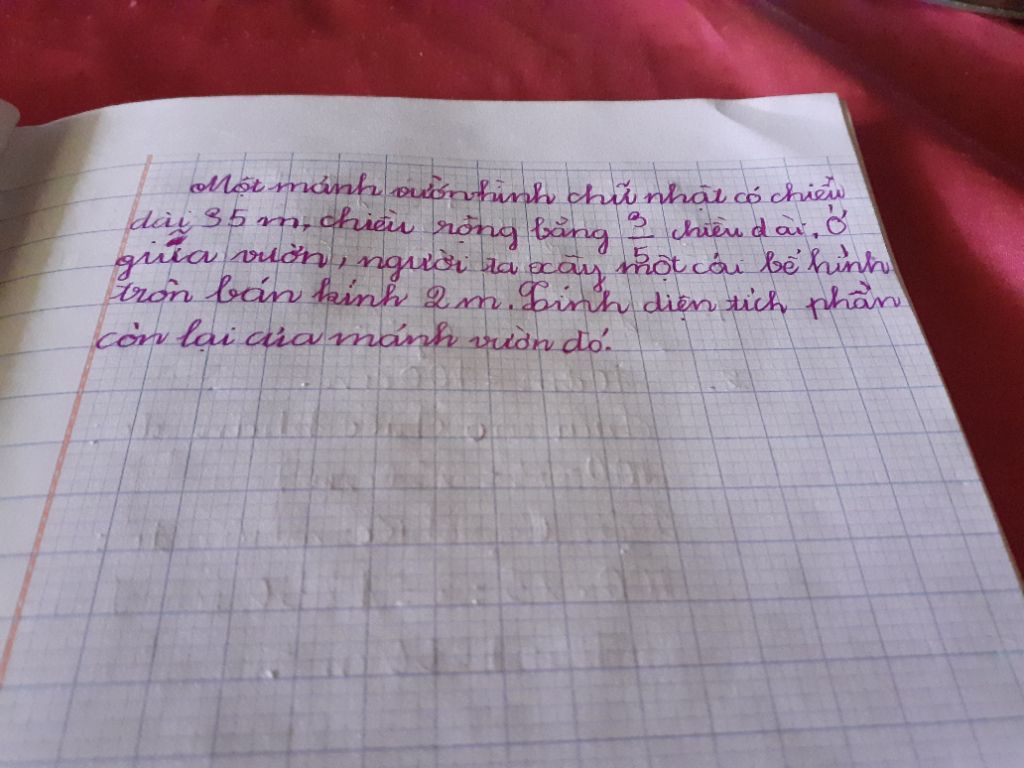 Một mảnh vườn hình chữ nhật có chiều
dài 35 m, chiều rộng bằng 3/5 chiều dài. Ở
giữa vườn, người ta xây một cái bể hình
tròn bán kính 2 m. Tính diện tích phần
còn lại của mảnh vườn đó.